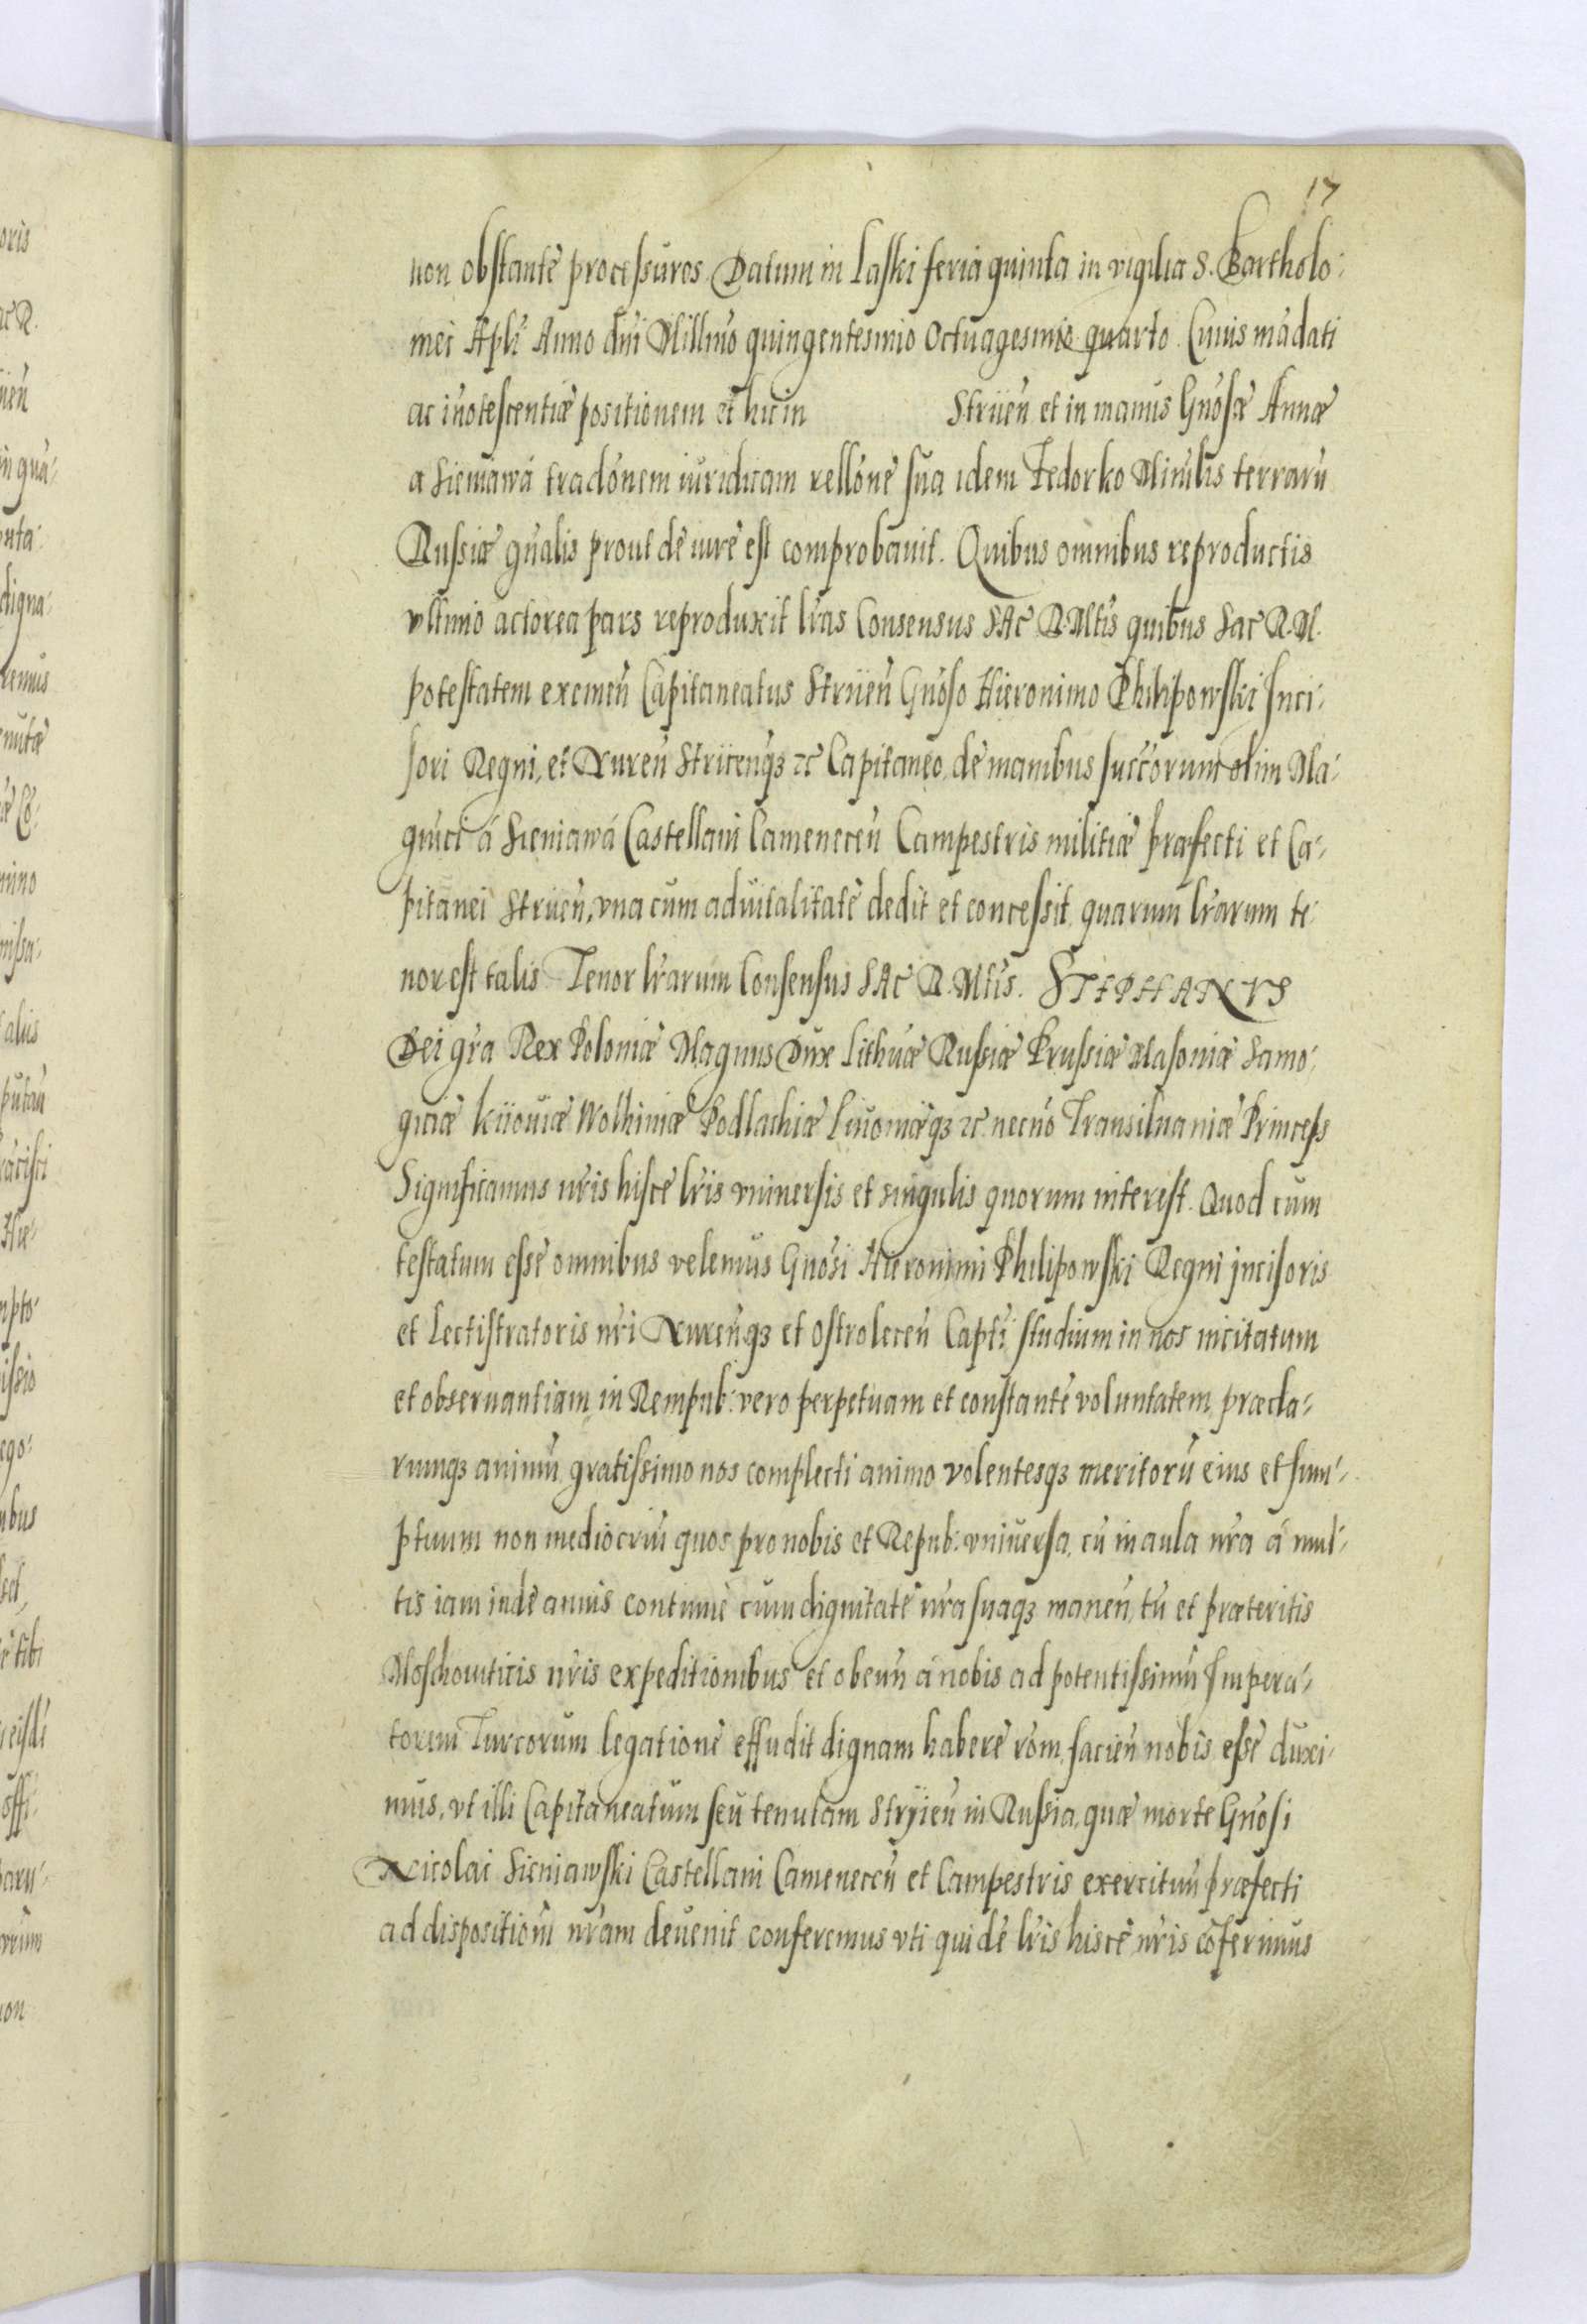 17
non obstante processuros. Datum in Laski feria quinta in vigilia S. Bartholo:
mei Apli Anno dni Millmo quingentesimo Octuagesimo quarto. Cuius mādati
ac inotescentiæ positionem et hic in Striień et in manus Gnosæ Annæ
a Sieniawá tradonem iuridicam rellone sua idem Fedorko Minulis terraru
Russiæ gnalis prout de iure est comprobauit. Quibus omnibus reproductis
vltimo actorea pars reproduxit lras Consensus SAc R. Mtis quibus Sac R. M.
potestatem eximeń Capitaneatus Striień Gnoso Hieronimo Philipowski Inci:
sori Regni, et Nureń Striteńqz zc Capitaneo, de manibus succorum olim Ma:
gnci á Sieniawá Castellani Cameneceń Campestris militiæ præfecti et Ca:
pitanei Striień, vna cum aduitalitate dedit et concessit, quarum lrarum te:
nor est talis Tenor lrarum Consensus SAc R. Mtis. STEPHANVS
Dei gra Rex Poloniæ Magnus Dux Lithuæ Russiæ Prussiæ Masoniæ Samo:
gitiæ Kiiouiæ Wolhiniæ Podlachiæ Liuoniæqz zc necno Transiluaniæ Princeps
Significamus nris hisce lris vniuersis et singulis quorum interest. Quod cum
testatum esse omnibus velemus Gnosi Hieronimi Philipowski Regni Incisoris
et Lectistratoris nri Nureńqz et Ostroleceń Capti studium in nos incitatum
et obseruantiam in Rempub: vero perpetuam et constante voluntatem, præcla:
rumqz animu gratissimo nos complecti animo volentesqz meritoru eius et sum:
ptuum non mediocriu quos pro nobis et Repub: vniuersa, cu in aula nra á mul:
tis iam inde annis continue cum dignitate nra suaqz maneń, tu et præteritis
Moschouiticis nris expeditionibus et obeun á nobis ad potentissimu Impera:
torem Turcorum legatione effudit dignam habere rom, facień nobis esse duxi:
mus, vt illi Capitaneatum seu tenutam Stryień in Russia, quæ morte Gnosi
Nicolai Sieniawski Castellani Cameneceń et Campestris exercituu præfecti
ad dispositiom nram deuenit conferemus vti quide lris hisce nris coferimus